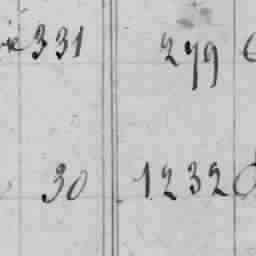 331 279
30 1232